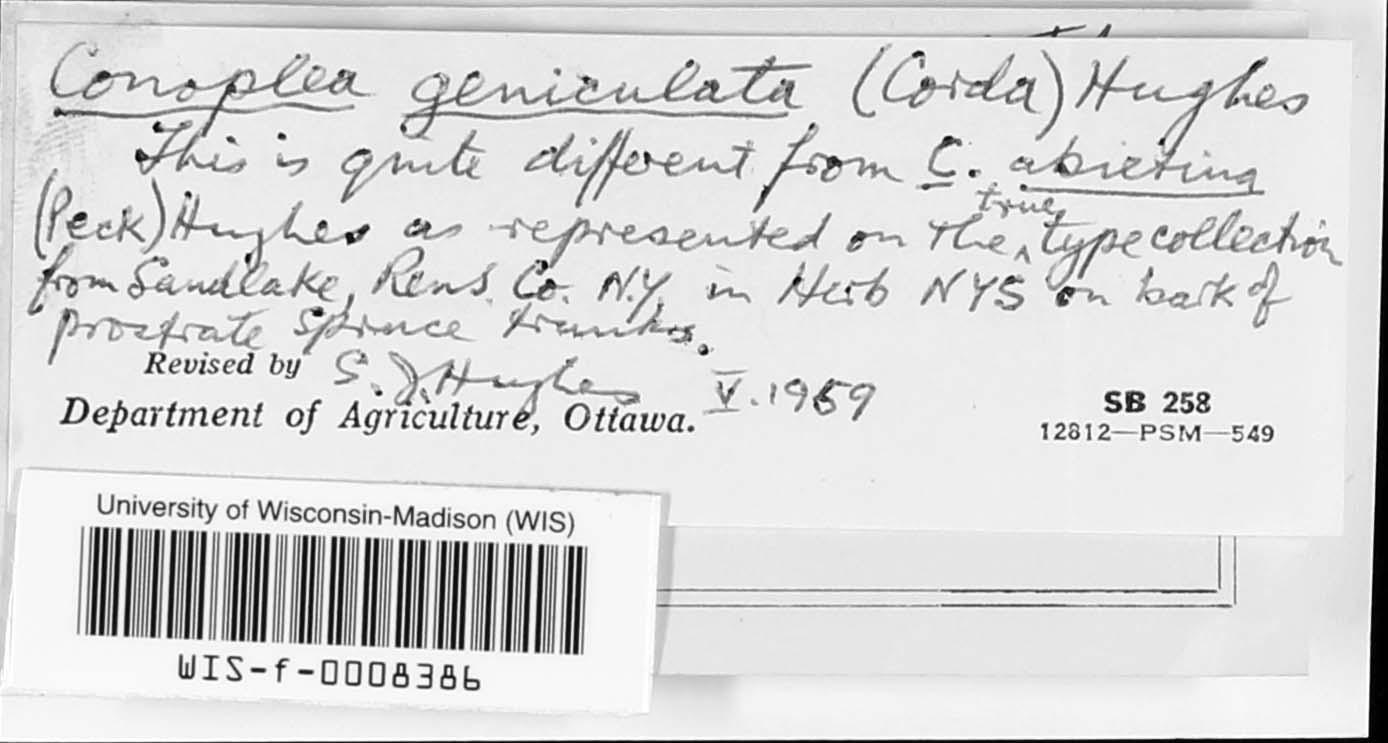 Conoplea geniculata (Corda) Hughes
This is quite different from C. abietina
(Peck) Hughes as represented on the true type collection
from Sandlake, Rens. Co. N.Y. in Herb NYS on bark of
prostrate spruce trunks.
Revised by S. J. Hughes V. 1959
Department of Agriculture, Ottawa.
SB 258
12812—PSM—549
University of Wisconsin-Madison (WIS)
WIS-f-0008386